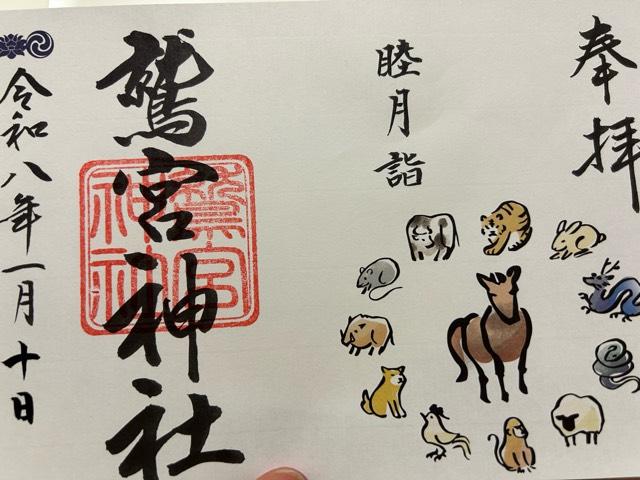 奉拝
睦月詣
鷲宮神社
鷲宮
神社
令和八年一月十日